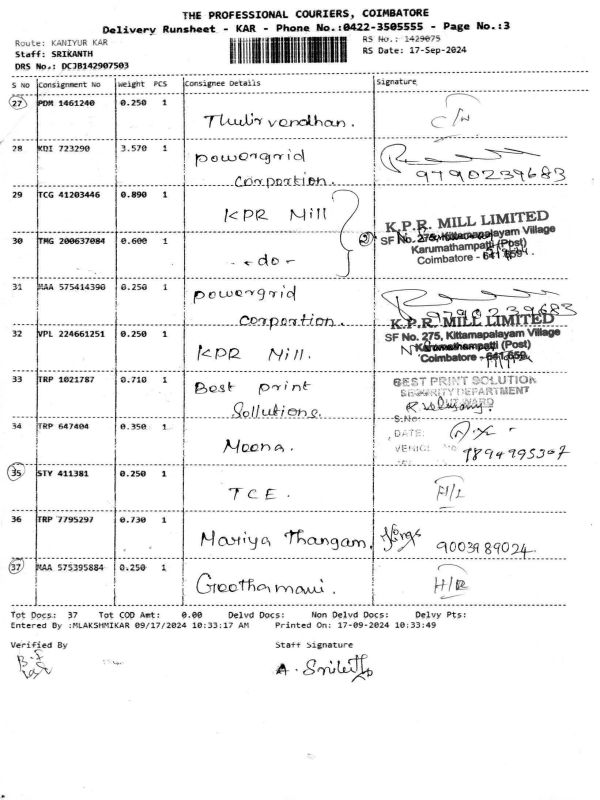 THE PROFESSIONAL COURIERS, COIMBATORE
Delivery Runsheet - KAR - Phone No.:0422-3505555 - Page No.:3
Route: KANIYUR KAR
RS No.: 1429075
Staff: SRIKANTH
RS Date: 17-Sep-2024
DRS No.: DCJB142907503
S No Consignment No Weight PCS Consignee Details Signature
27 PDM 1461240 0.250 1 Thulir vendhan.
28 KDI 723290 3.570 1 powergrid corportion. 9790239683
29 TCG 41203446 0.890 1 KPR Mill
K.P.R. MILL LIMITED
SF No. 275, Kittamapalayam Village
Karumathampatti (Post)
Coimbatore - 641 659.
30 TMG 200637084 0.600 1 - do -
31 MAA 575414390 0.250 1 powergrid corportion. 9790239683
K.P.R. MILL LIMITED
SF No. 275, Kittamapalayam Village
Karumathampatti (Post)
Coimbatore - 641 659.
32 VPL 224661251 0.250 1 KPR Mill.
33 TRP 1021787 0.710 1 Best print Sollutions.
BEST PRINT SOLUTION
SECURITY DEPARTMENT
S.No:
DATE:
34 TRP 647404 0.350 1 Meena. 9894995307
35 STY 411381 0.250 1 TCE. H/L
36 TRP 7795297 0.730 1 Mariya Thangam. 9003989024
37 MAA 575395884 0.250 1 Geethamani.
Tot Docs: 37 Tot COD Amt: 0.00 Delvd Docs: Non Delvd Docs: Delvy Pts:
Entered By :MLAKSHMIKAR 09/17/2024 10:33:17 AM Printed On: 17-09-2024 10:33:49
Verified By Staff Signature